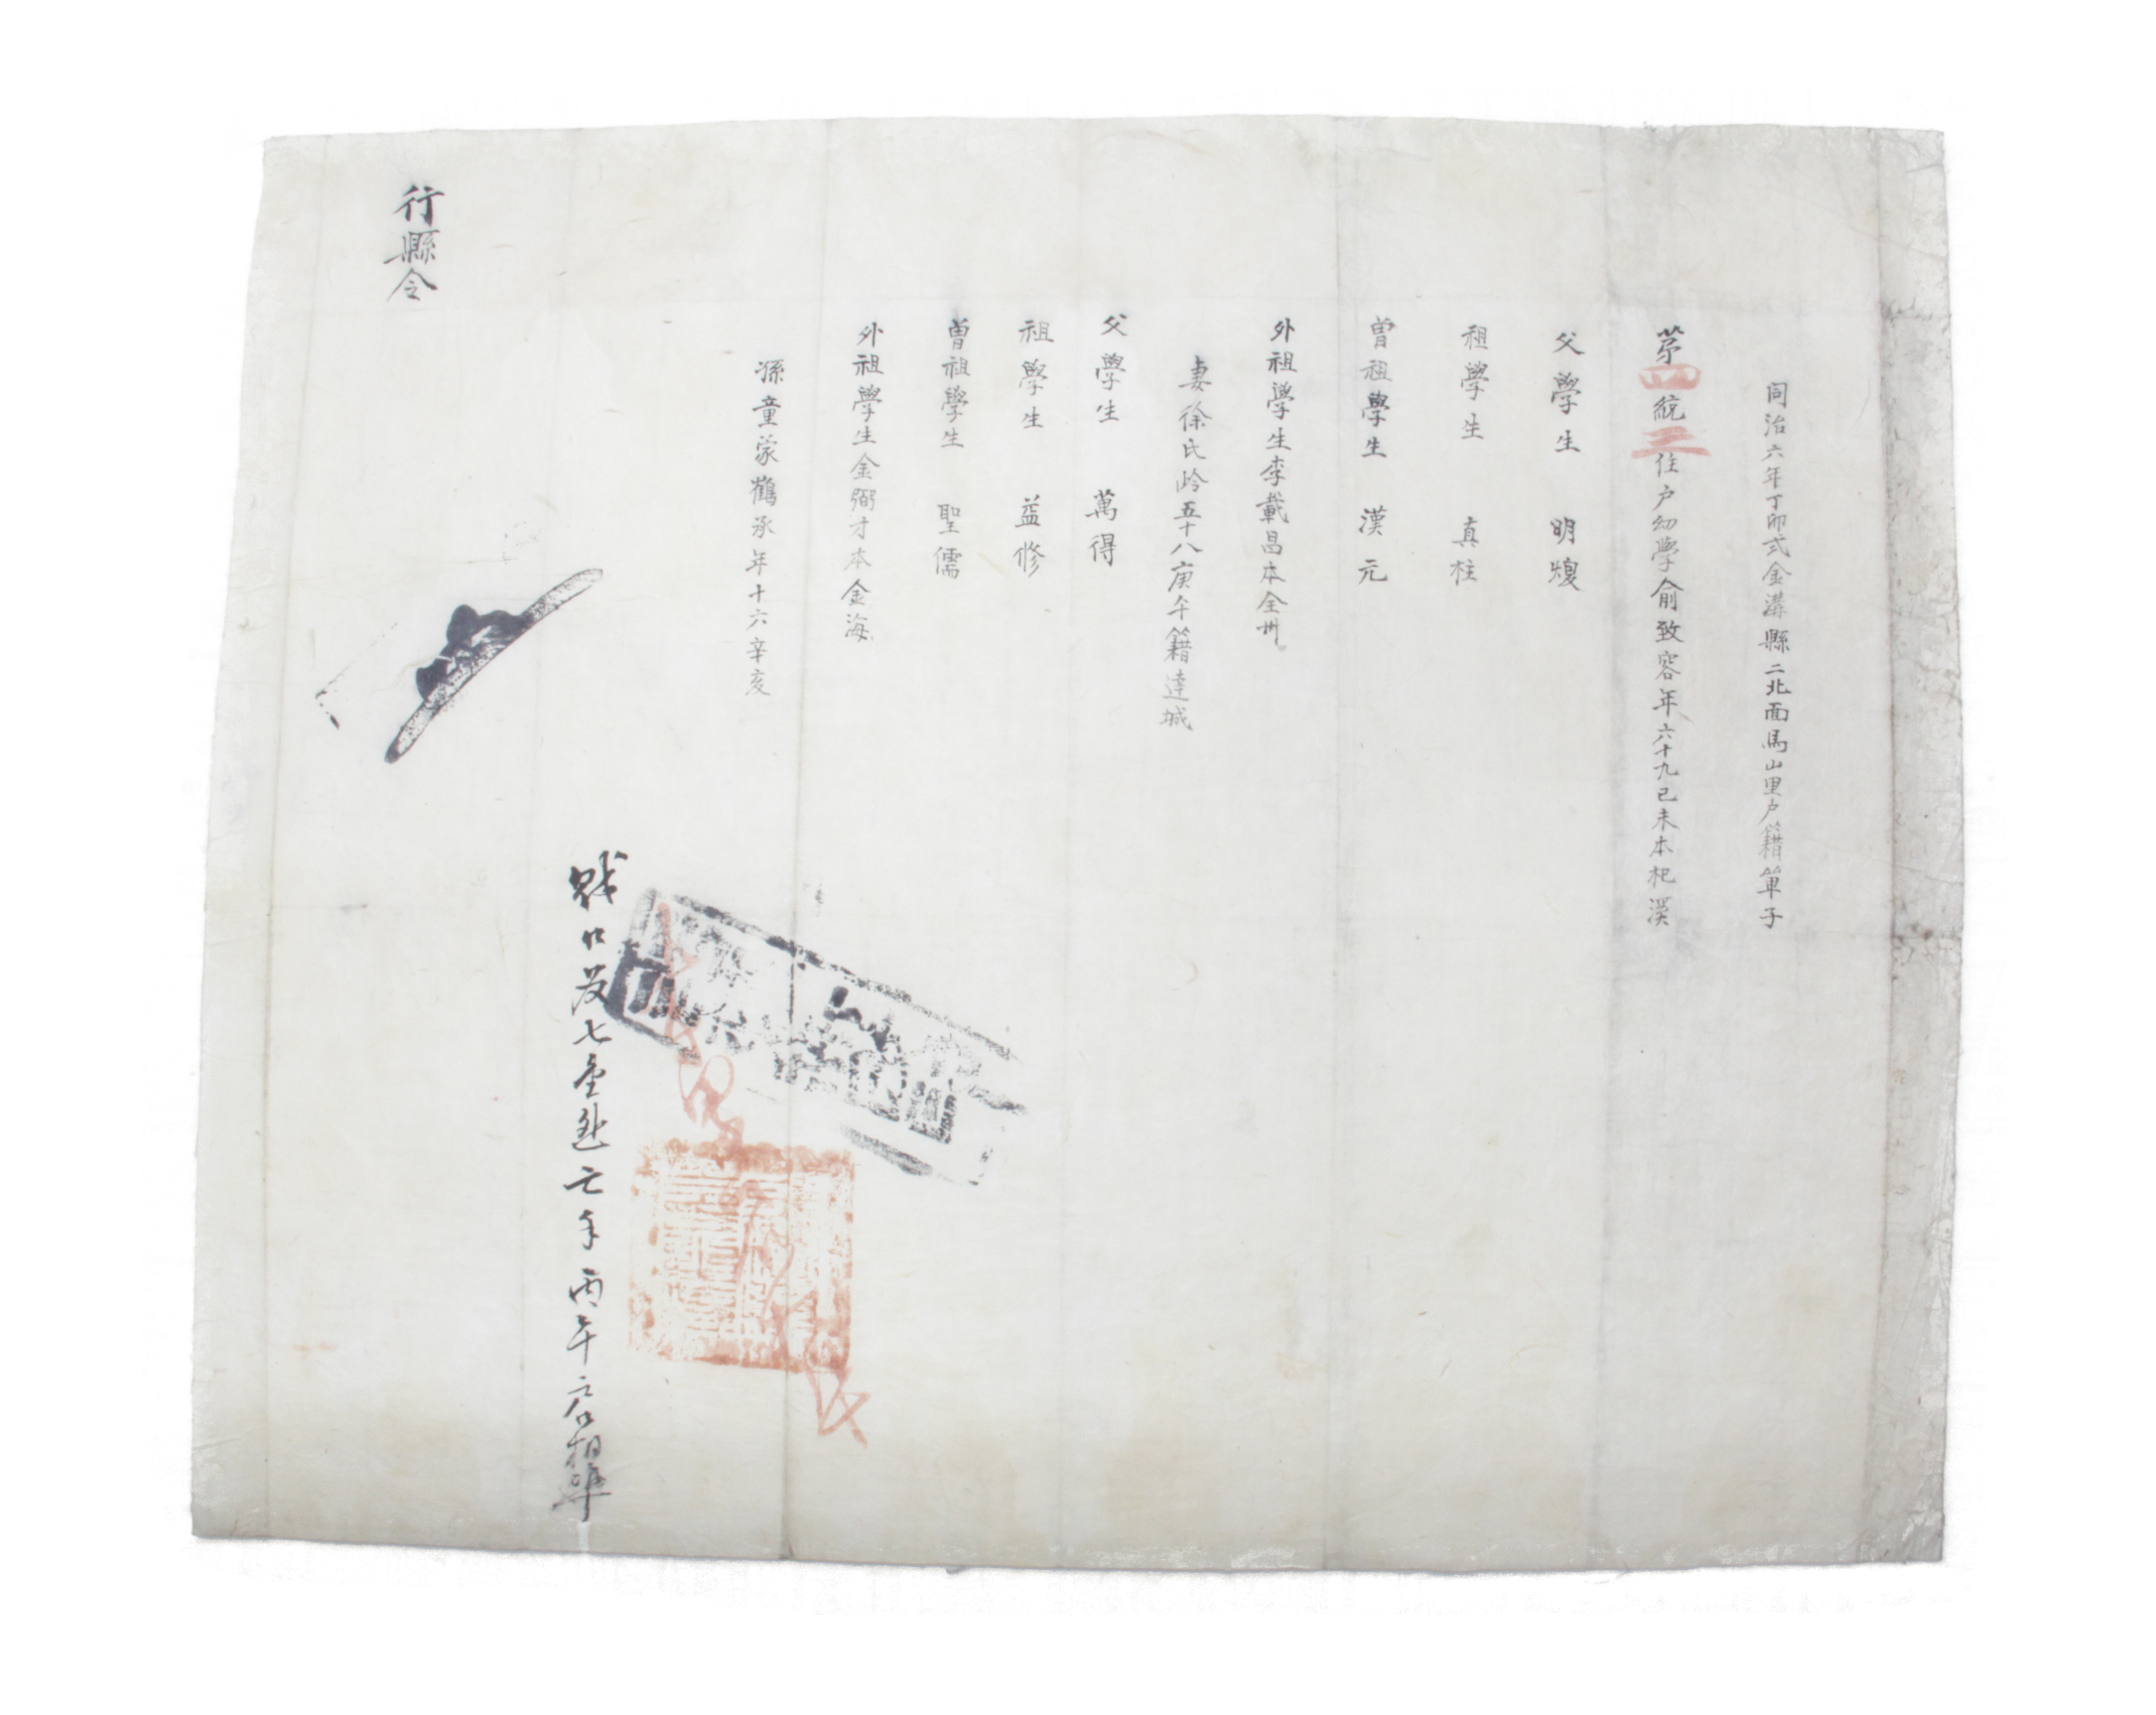 同治六年丁卯式金溝縣二北面馬山里户籍單子
茅四統三住户幼學俞致容年六十九己未本杞溪
父學生 明煥
祖學生 真柱
曾祖學生 漢元
外祖學生李載昌本全州
妻徐氏岭五十八庚午籍達城
父學生 萬得
祖學生 益修
曾祖學生 聖儒
外祖學生金弼才本金海
孫童蒙鶴承年十六辛亥
丙午户口相準
行縣令